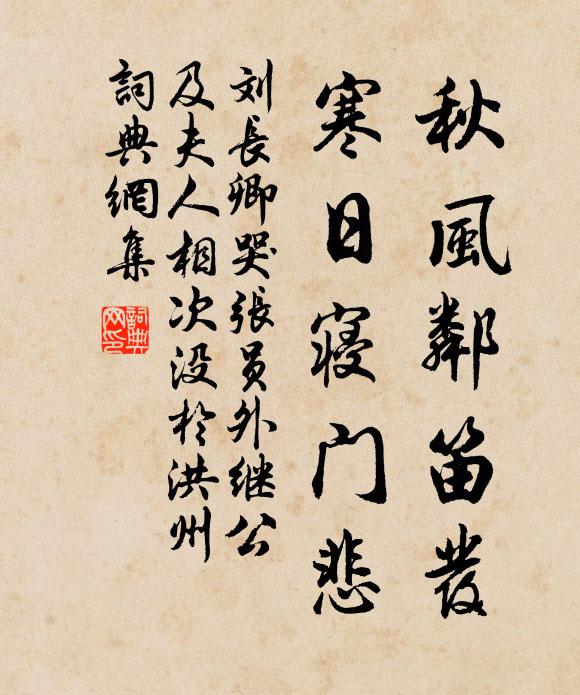 秋風鄰笛發
寒日寝门悲
刘長卿哭張员外继公
及夫人相次没於洪州
詞典網集
詞典网印